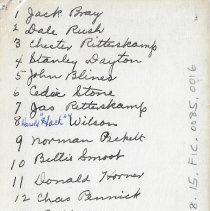 1 Jack Bray
2 Dale Rush
3 Chester Ritterskamp
4 Stanley Dayton
5 John Blines
6 Cedric Stone
7 Jas Ritterskamp
8 Harold "Hack" Wilson
9 Norman Pickett
10 Bettis Smoot
11 Donald
12 Chas Pennick
8.15.F.1C.0985.0016